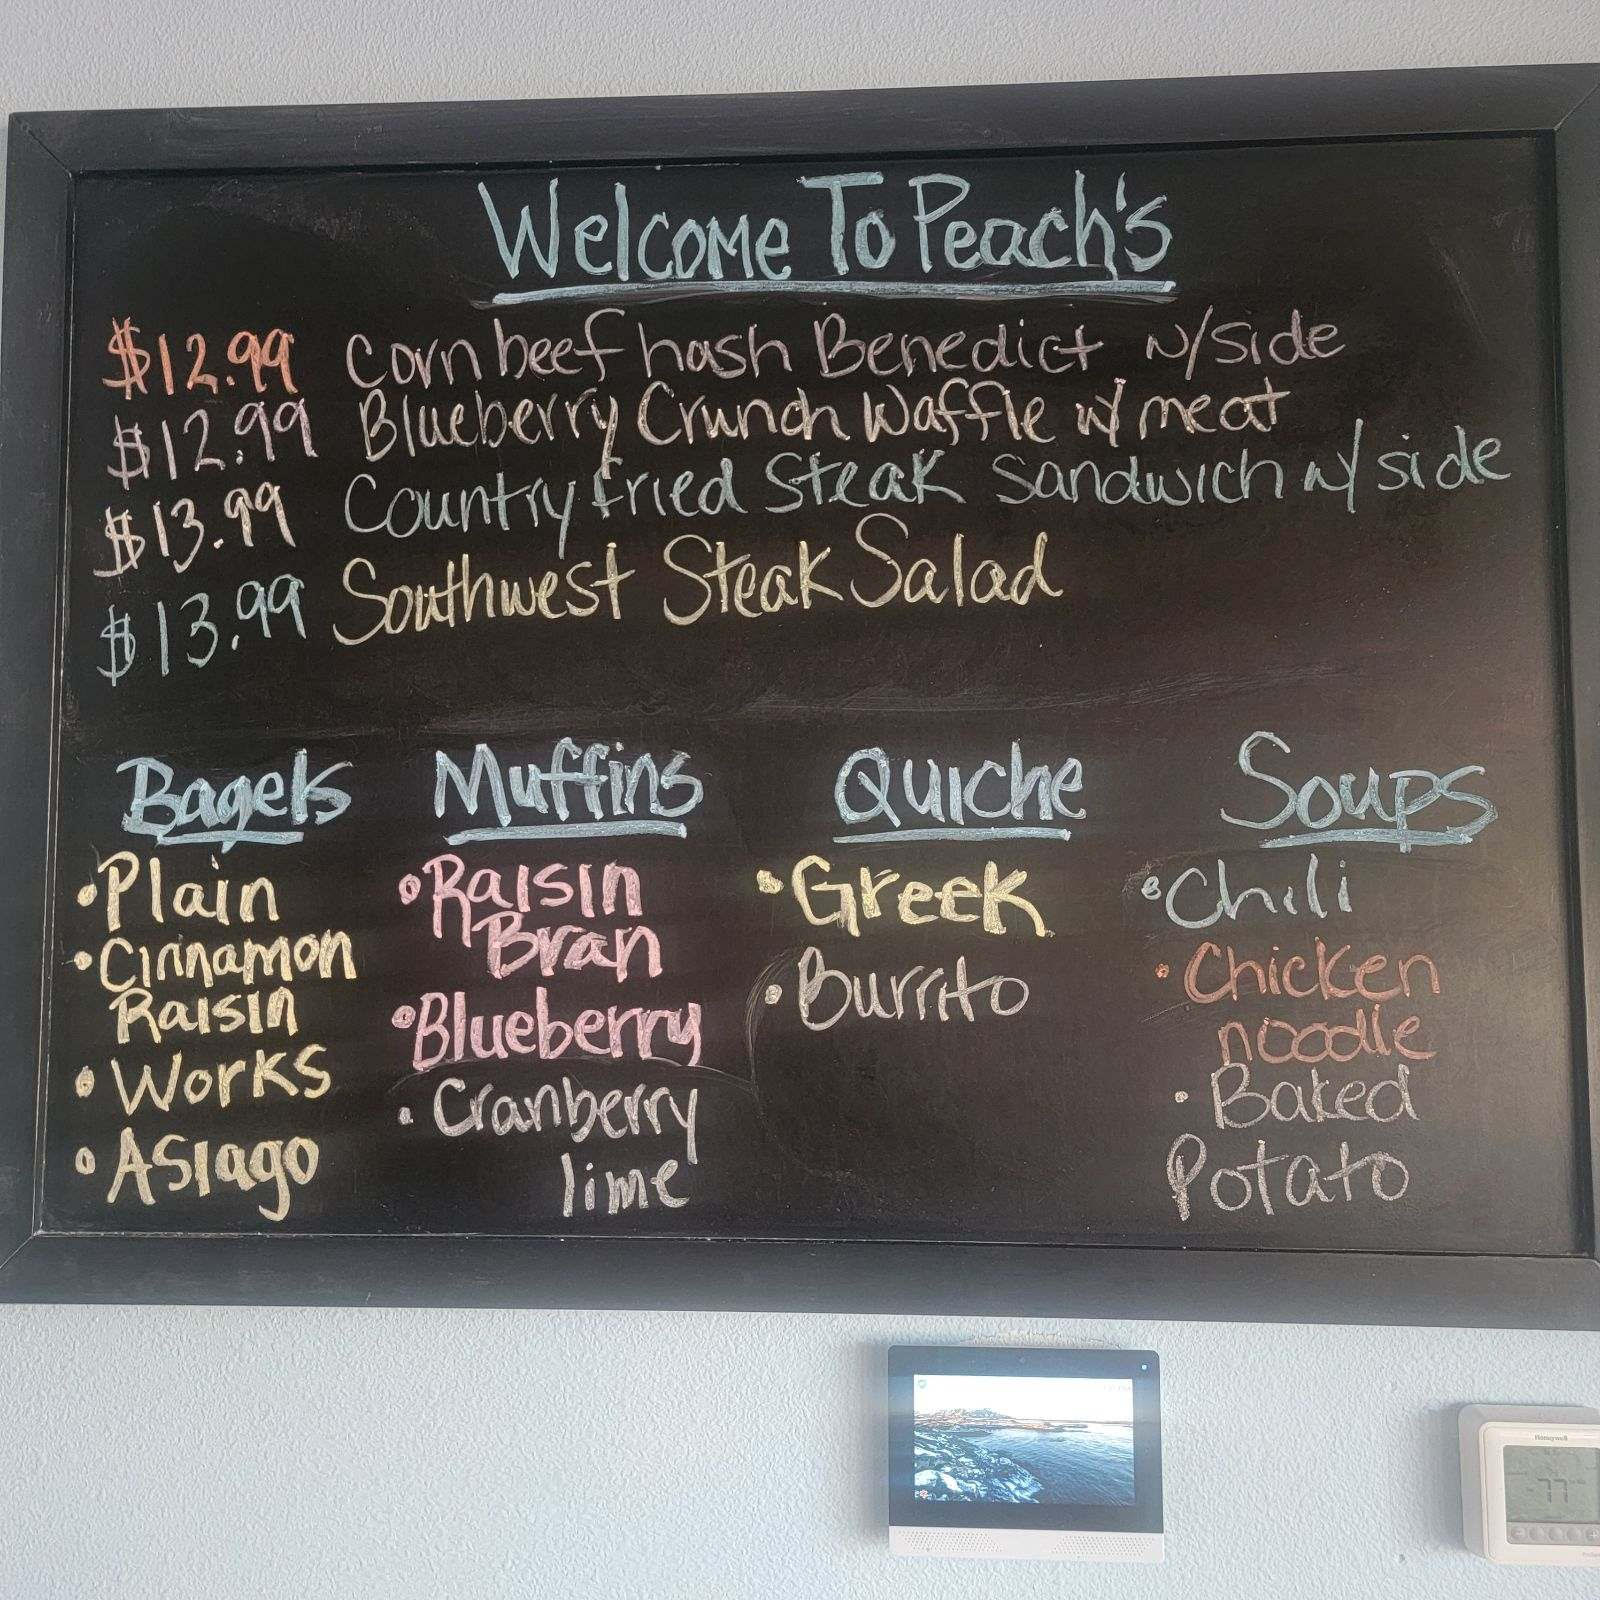 Welcome To Peach's
$12.99 Corn beef hash Benedict w/side
$12.99 Blueberry Crunch Waffle w/ meat
$13.99 Country fried Steak Sandwich w/ side
$13.99 Southwest Steak Salad
Bagels
• Plain
• Cinnamon
Raisin
• Works
• Asiago
Muffins
• Raisin
Bran
• Blueberry
• Cranberry
lime
Quiche
• Greek
• Burrito
Soups
• Chili
• Chicken
noodle
• Baked
Potato
Honeywell
77